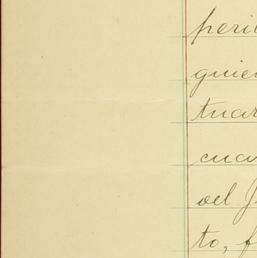 peri
quie
tuar
cua
del J
to, f